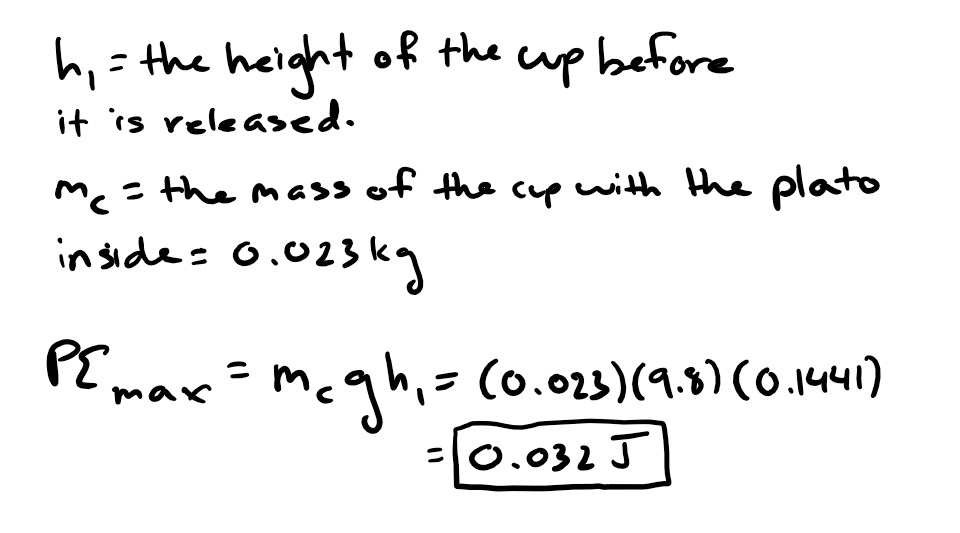 h₁ = the height of the cup before
it is released.
m_c = the mass of the cup with the plato
inside = 0.023 kg
PE_max = m_c g h₁ = (0.023)(9.8)(0.1441)
= 0.032 J